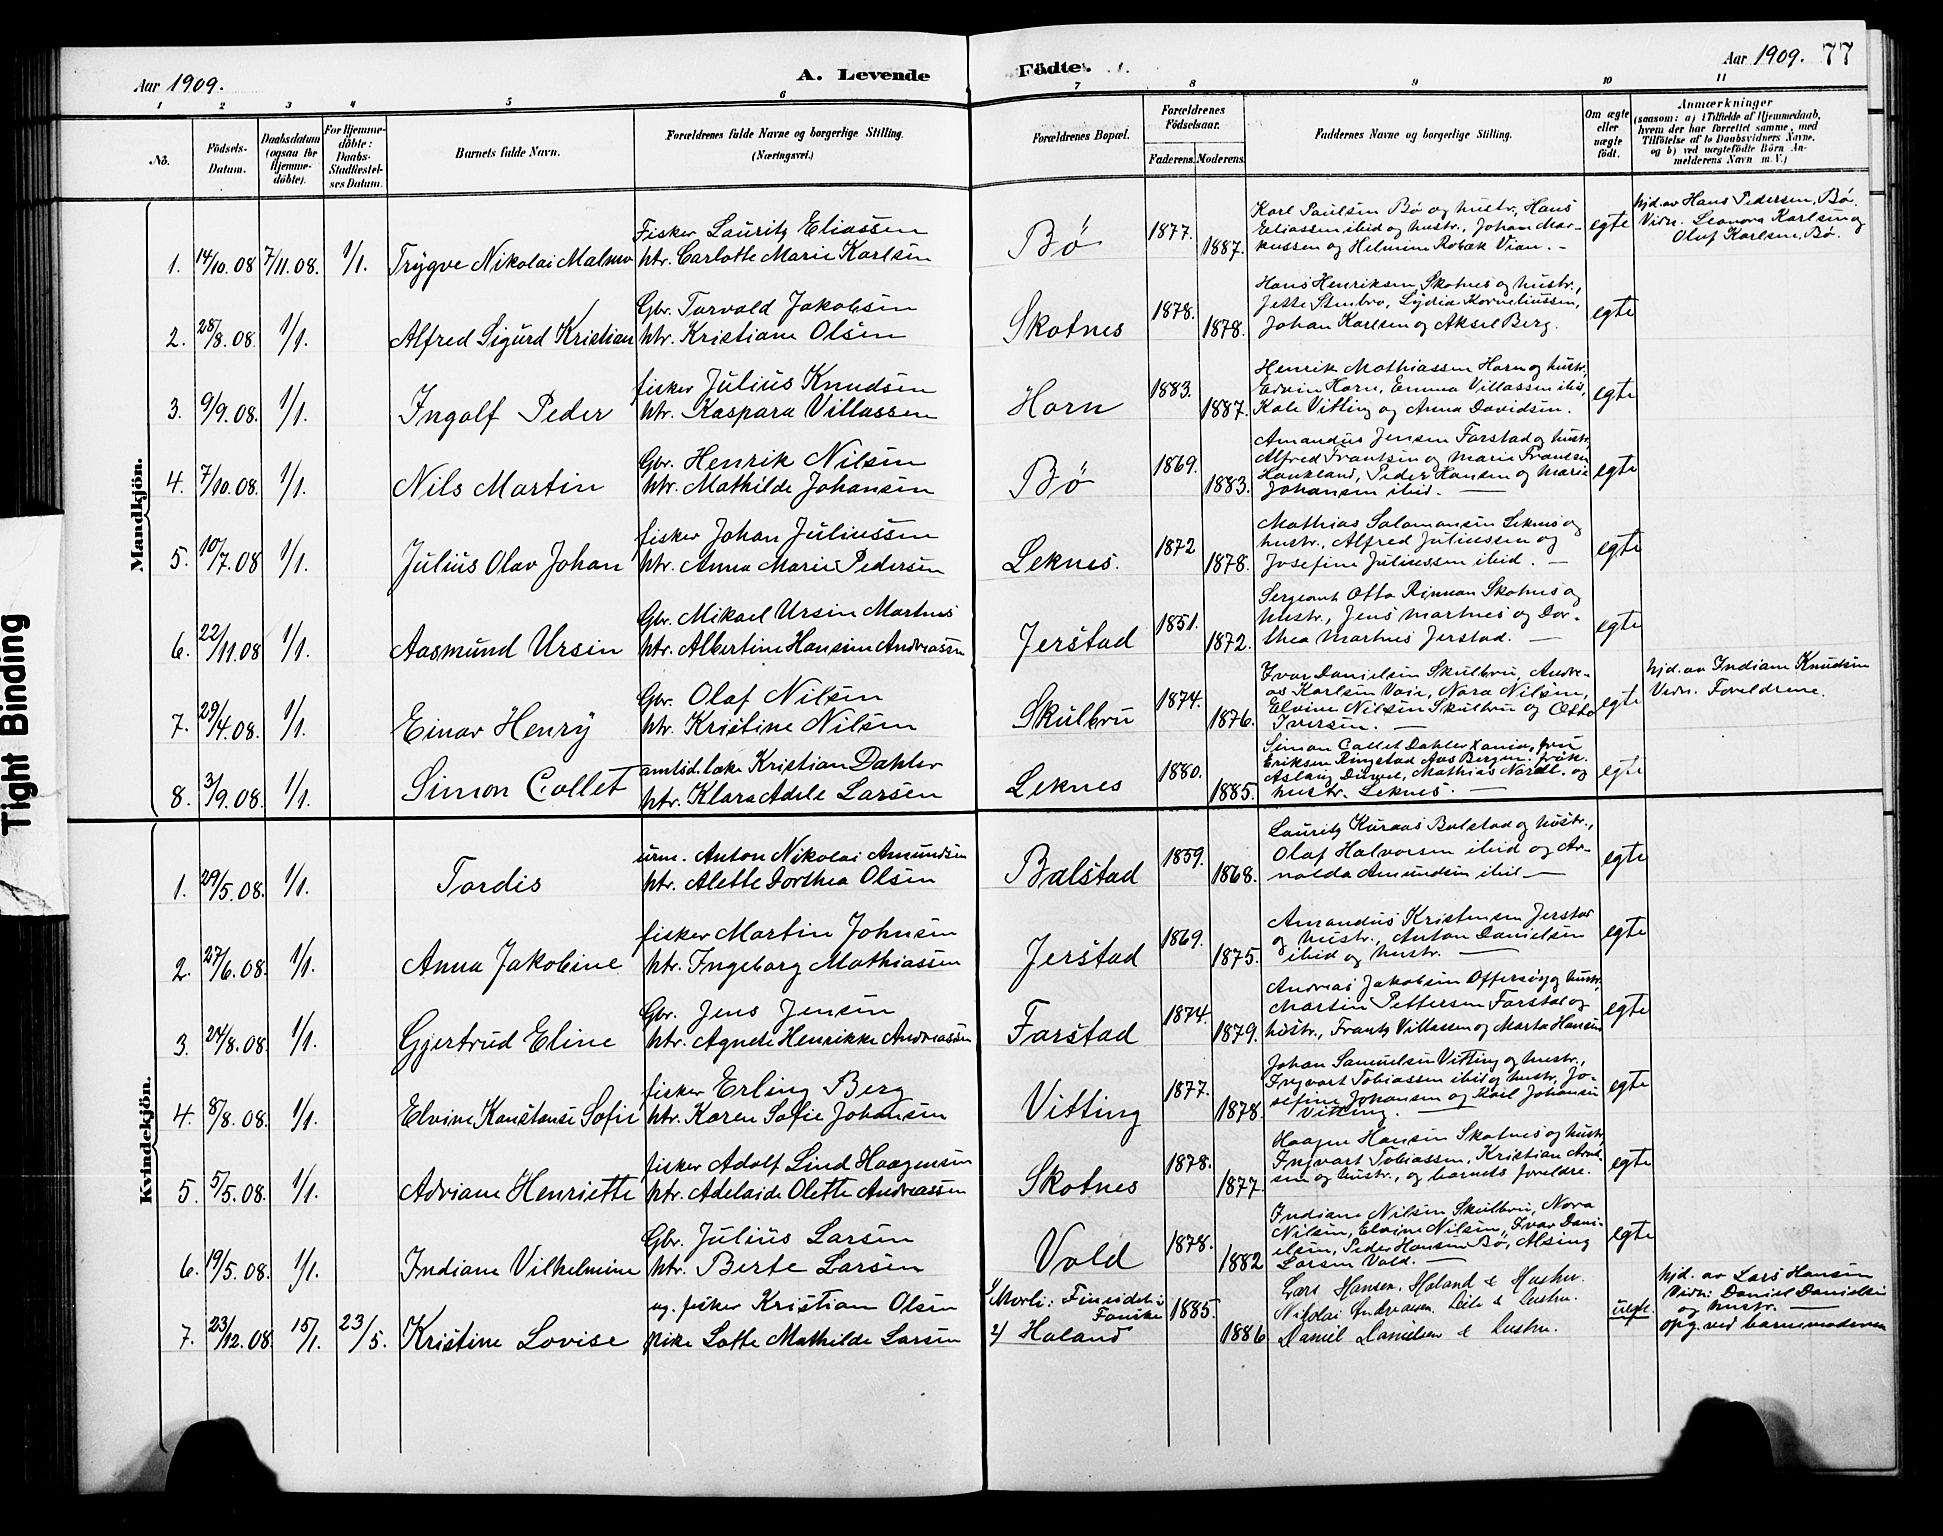 Aar 1909.
A. Levende
Födte.
Aar 1909. 77
1 2 3 4 5 6 7 8 9 10 11
No.
Födsels-
Datum.
Daabsdatum
(ogsaa for
Hjemme-
döbte).
For Hjemme-
döbte:
Daabs-
Stadfæstel-
ses Datum.
Barnets fulde Navn.
Forældrenes fulde Navne og borgerlige Stilling.
(Næringsvei.)
Forældrenes Bopæl.
Forældrenes
Födselsaar.
Faderens. Moderens.
Faddernes Navne og borgerlige Stilling.
Om ægte
eller
uægte
födt.
Anmærkninger
(saasom: a) i Tilfælde af Hjemmedaab,
hvem der har forrettet samme, med
Tilföielse af to Daabsvidners Navne,
og b) ved uægtefödte Börn An-
melderens Navn m. V.)
Mandkjön.
1. 14/10.08 7/11.08. 1/1. Trygve Nikolai Malmo
Fisker Lauritz Eliassen
htr. Carlotte Marie Karlsen
Bö 1877. 1887.
Karl Paulsen Bö og hustr., Hans
Eliassen ibid og hustr., Johan Mar-
kussen og Helmine Robæk Vian. -
egte
hjd. av Hans Pedersen, Bö.
Vidn. Leonora Karlsen og
Olaf Karlsen, Bö.
2. 25/8.08. 1/1. Alfred Sigurd Kristian
Gbr. Torvald Jakobsen
htr. Kristiane Olsen
Skotnes 1878. 1878.
Hans Henriksen Skotnes og hustr.,
Jette Stenbro, Lydia Korneliussen,
Johan Karlsen og Aksel Berg.
egte
3. 9/9.08. 1/1. Ingolf Peder
fisker Julius Knudsen
htr. Kaspara Villassen
Horn 1883. 1887.
Henrik Mathiassen Horn og hustr,
Edvin Horn, Emma Villassen ibid,
Kale Vitting og Anna Davidsen.
egte
4. 7/10.08. 1/1. Nils Martin
Gbr. Henrik Nilsen
htr. Mathilde Johansen
Bö 1869. 1883.
Amandus Jensen Farstad og hustr,
Alfred Frantsen og Marie Frantsen
Haukland, Peder Hansen og Marie
Johansen ibid.
egte
5. 10/7.08 1/1. Julius Olav Johan
fisker Johan Juliussen
htr. Anna Marie Pedersen
Leknes. 1872 1878.
Mathias Salamonsen Leknes og
hustr., Alfred Juliussen og
Josefine Juliussen ibid.
egte
6. 22/11.08 1/1. Aasmund Ursin
Gbr. Mikael Ursin Martnes
htr. Albertine Hansine Andreassen
Jerstad 1851. 1872.
Sergeant Otto Rinnan Skotnes og
hustr., Jens Martnes og Dor-
thea Martnes Jerstad.
egte
7. 29/4.08. 1/1. Einar Henry
Gbr. Olaf Nilsen
htr. Kristine Nilsen
Skulbru 1874. 1876.
Ivar Danielsen Skulbru, Andre-
as Karlsen Voie, Nora Nilsen,
Elvine Nilsen Skulbru og Otto
Iversen.
egte
hjd. av Indiane Knudsen
Vidn. Foreldrene.
8. 3/9.08. 1/1. Simon Collet
amtsd.læke Kristian Dahler
htr. Klara Adele Larsen
Leknes 1880. 1885.
Simon Collet Dahler Xania, fru
Eriksen Ringstad Aas Bergen, frøk.
Aslaug, Mathias Nordl. og
hustr. Leknes.
egte
Kvindekjön.
1. 29/5.08. 1/1. Tordis
urm. Anton Nikolai Amundsen
htr. Alette Dorthea Olsen
Balstad 1859. 1868.
Lauritz Kuraas Balstad og hustr.,
Olaf Halvorsen ibid og Ar-
nolda Amundsen ibid
egte
2. 27/6.08. 1/1. Anna Jakobine
fisker Martin Johnsen
htr. Ingeborg Mathiassen
Jerstad 1869. 1875.
Amandus Kristensen Jerstad
og hustr., Anton Danielsen
ibid og hustr.
egte
3. 24/8.08. 1/1. Gjertrud Eline
Gbr. Jens Jensen
htr. Agnete Henrikke Andreassen
Farstad 1874. 1879.
Andreas Jakobsen Offersöy og hustr,
Martin Pettersen Farstad og
hustr., Frantz Villassen og Marta Hansen
egte
4. 8/8.08. 1/1. Elvine Konstanse Sofie
fisker Erling Berg
htr. Karen Sofie Johansen
Vitting 1877. 1878.
Johan Samuelsen Vitting og hustr.,
Ingvart Tobiassen ibid og hustr, Jo-
sefine Johansen og Karl Johansen
Vitting.
egte
5. 5/5.08. 1/1. Adriane Henriette
fisker Adolf Lind Haagensen
htr. Adelaide Olette Andreassen
Skotnes 1878. 1877.
Haagen Hansen Skotnes og hustr,
Ingvart Tobiassen, Kristian Arnt-
sen og hustr., og barnets foreldre.
egte
6. 19/5.08. 1/1. Indiane Vilhelmine
Gbr. Julius Larsen
htr. Berte Larsen
Vold 1878. 1882
Indiane Nilsen Skulbru, Nora
Nilsen, Elvine Nilsen, Ivar Dani-
elsen, Peder Hansen Bö, Alsing
Larsen Vold.
egte
7. 23/12.08. 15/1. 23/5. Kristine Lovise
ug. fisker Kristian Olsen
pike Lotte Mathilde Larsen
1/ Morli: Finneide i
Fauske
2/ Holand
1885. 1886
Lars Hansen, Holand & Hustru.
Nikolai Andreassen & hustru.
Daniel Danielsen & hustru.
uegte.
hjd. av Lars Hansen
Vidn: Daniel Danielsen
og hustr.
opg. ved barnemoderen
Tight Binding